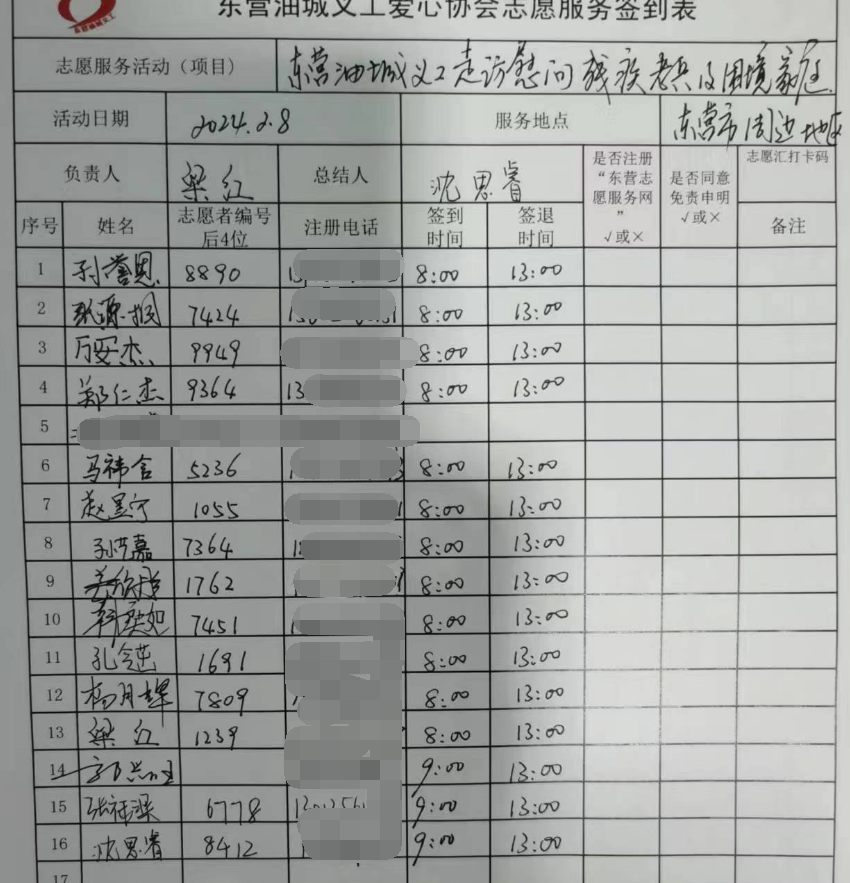 东营油城义工爱心协会志愿服务签到表
志愿服务活动（项目） 东营油城义工走访慰问残疾老兵及困境家庭
活动日期 2024.2.8 服务地点 东营市周边地区
负责人 梁红 总结人 沈思睿 是否注册“东营志愿服务网” √或× 是否同意免责申明 √或× 志愿汇打卡码
序号 姓名 志愿者编号后4位 注册电话 签到时间 签退时间 备注
1 8890 8:00 13:00
2 7424 8:00 13:00
3 万安杰 9949 8:00 13:00
4 郑仁杰 9364 13 8:00 13:00
5
6 马祎含 5236 8:00 13:00
7 1055 8:00 13:00
8 7364 8:00 13:00
9 1762 8:00 13:00
10 7451 8:00 13:00
11 1691 8:00 13:00
12 杨月 7809 8:00 13:00
13 梁红 1239 8:00 13:00
14 9:00 13:00
15 6778 9:00 13:00
16 沈思睿 8412 9:00 13:00
17